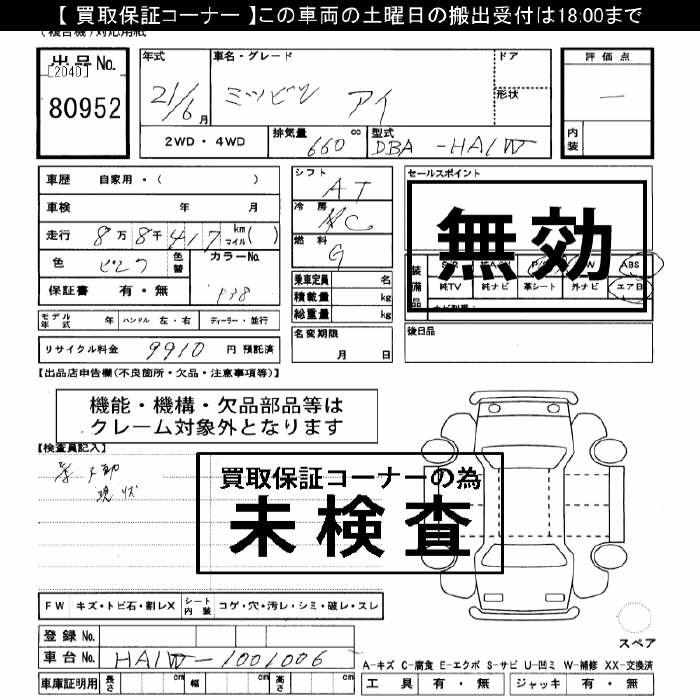 【 買取保証コーナー 】この車両の土曜日の搬出受付は18:00まで
(複合機)対応用紙
出品No.
[2040]
80952
年式
21/6月
車名・グレード
ミツビシ アイ
ドア
形状
評価点
—
内装
2WD・4WD
排気量 660 cc
型式 DBA -HA1W
車歴 自家用・( )
車検 年 月
走行 8万8千417 km マイル( )
色 ピンク
色替
カラーNo. P38
保証書 有・無
シフト AT
冷房 AC
燃料 G
乗車定員 名
積載量 kg
総重量 kg
セールスポイント
無効
装備品
ABS
純TV 純ナビ 革シート 外ナビ エアB
モデル年式 年 ハンドル 左・右 ディーラー・並行
リサイクル料金 9910 円 預託済
名変期限 月 日
後日品
【出品店申告欄(不良箇所・欠品・注意事項等)】
機能・機構・欠品部品等は
クレーム対象外となります
【検査員記入】
不動
現状
買取保証コーナーの為
未検査
FW キズ・トビ石・割レX シート内装 コゲ・穴・汚レ・シミ・破レ・スレ
スペア
登録No.
車台No. HA1W-1001006
A-キズ C-腐食 E-エクボ S-サビ U-凹ミ W-補修 XX-交換済
車庫証明用 長さ cm 幅 cm 高さ cm
工具 有・無 ジャッキ 有・無